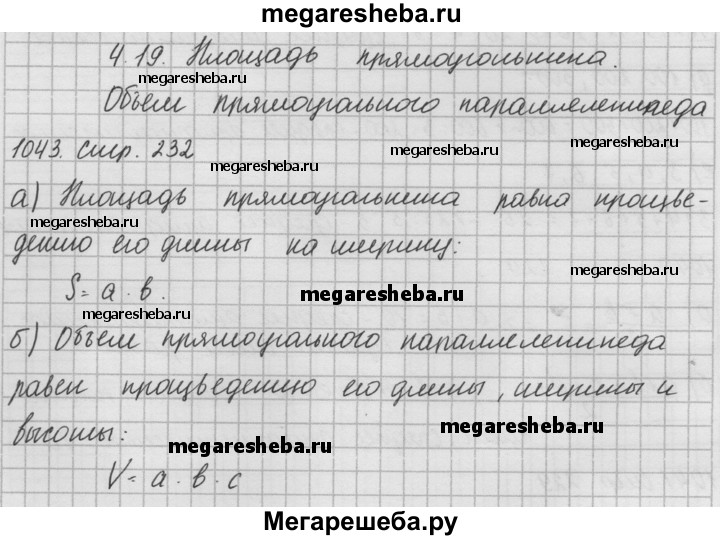 megaresheba.ru
4.19. Площадь прямоугольника.
megaresheba.ru
megaresheba.ru
Объем прямоугольного параллелепипеда
1043. стр. 232
megaresheba.ru
megaresheba.ru
megaresheba.ru
а) Площадь прямоугольника равна произве-
megaresheba.ru
дению его длины на ширину:
megaresheba.ru
S = a · b.
megaresheba.ru
megaresheba.ru
б) Объем прямоугольного параллелепипеда
равен произведению его длины, ширины и
высоты:
megaresheba.ru
megaresheba.ru
V = a · b · c
Мегарешеба.ру